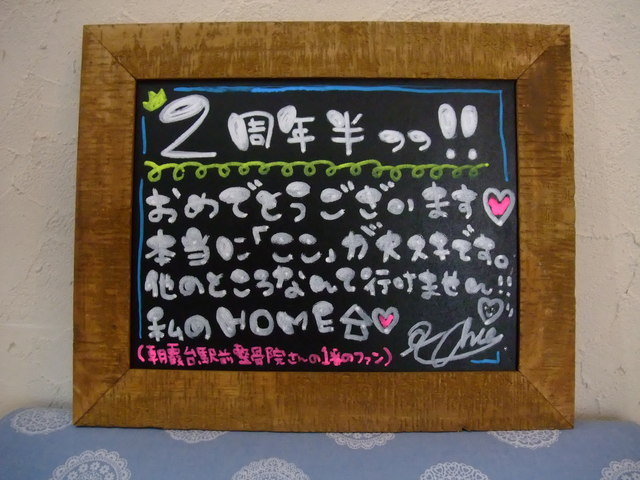 2周年半っっ!!
おめでとうございます
本当に「ここ」が大スキです。
他のところなんて行けません!!
私のHOME
(朝霞台駅前整骨院さんの1番のファン)
Chie